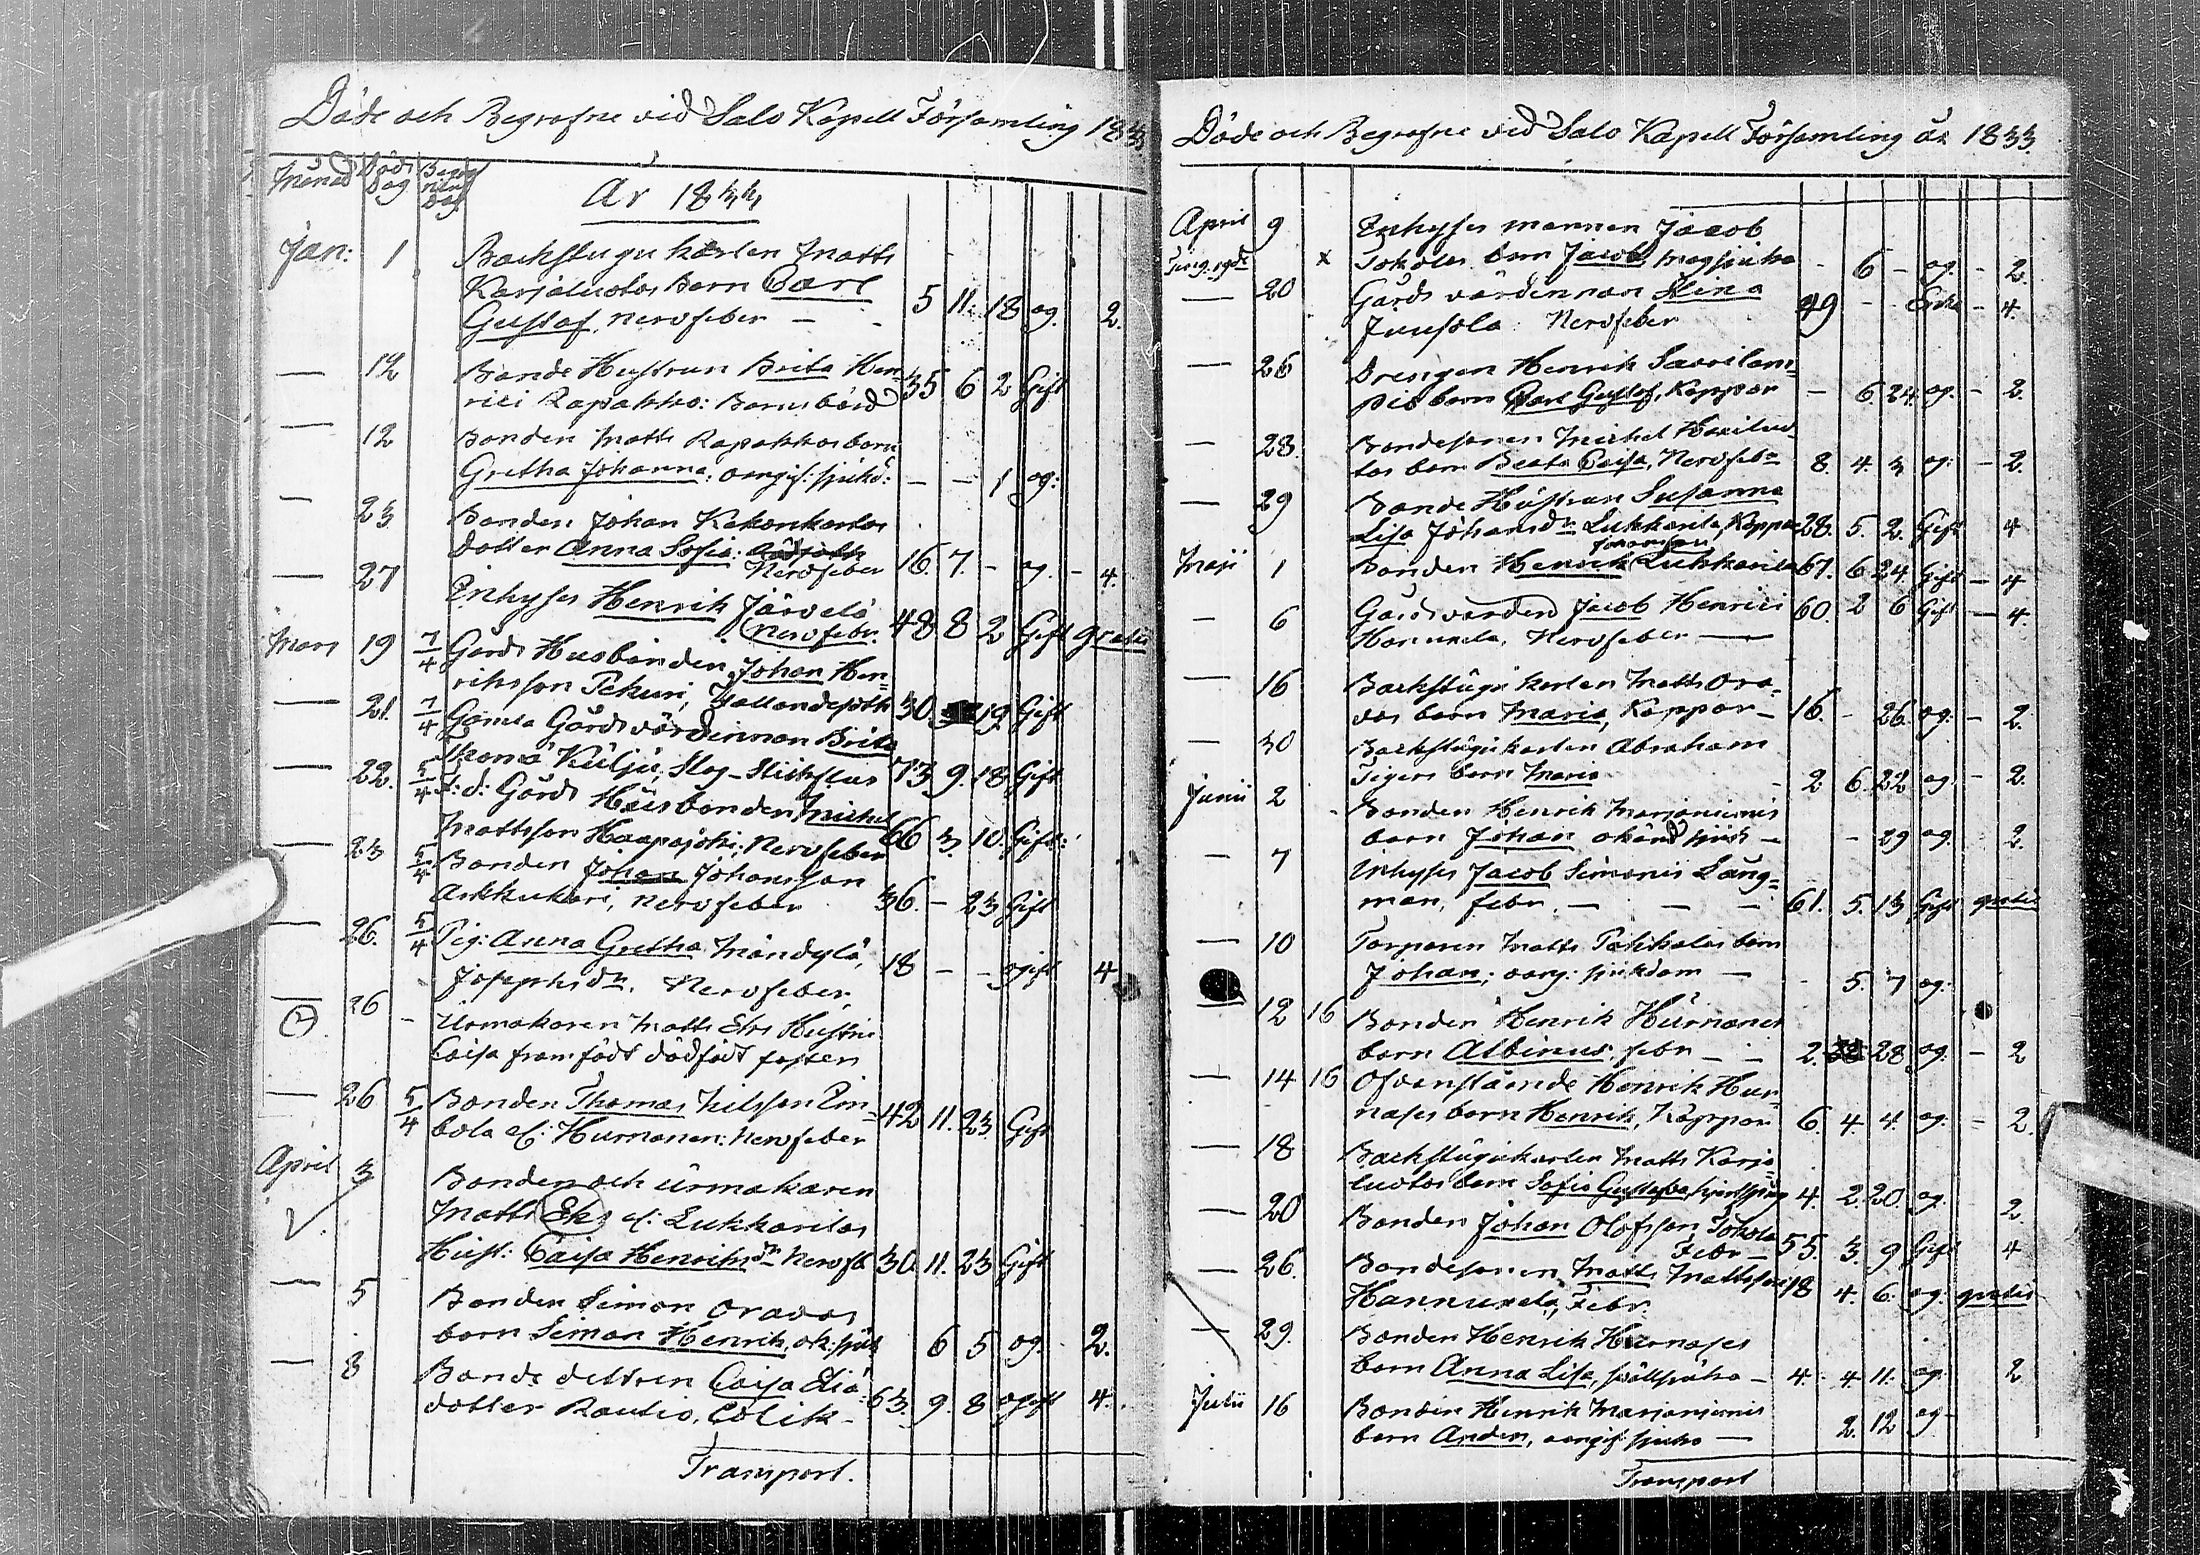 Döde och Begrafne vid Salo Kapell Församling 1833
Månad Döds Dag Begraf nings Dag
År 1833
Jan: 1 Backstugu karlen Matts
Karjaluotos Barn Carl
Gustaf, nervfeber — 5 11. 18 og. 2.
— 12 Bonde Hustrun Brita Hen-
rici Rapakko: Barnsbörd 35 6 2 Gift
— 12 Bonden Matts Rapakkos barn
Gretha Johanna: oangif: sjukd: — — 1 og:
— 23 Bonden Johan
dotter Anna Sofia:
Nervfeber 16. 7. - og. - 4.
— 27 Inhyses Henrik Järvelä
Nervfebr. 48 8 2 Gift gratis
Mars 19 7/4 Gårds Husbonden Johan Hen-
riksson Pekuri, 30. 19 Gift
— 21. 7/4 Gamla Gårds värdinnan Brita
Thomæ Küljü, Slag - 73 9. 18 Gift
— 22. 5/4 f: d: Gårds Husbonden Michel
Mattsson Haapajoki; Nervfeber 66 3. 10. Gift:
— 23 5/4 Bonden Johan Johansson
Arkkukari, nervfeber 36. - 23 Gift
— 26. 5/4 Pig: Anna Gretha Mändylä,
Josephsdr. Nervfeber, 18 - - ogift 4
— 26 - Urmakaren Matts Eks Hustru
Caisa framfödt dödfödt foster
— 26 5/4 Bonden Thomas Nilsson
el: Hurnanen: nervfeber 42 11. 23. Gift
April 3 Bonden och urmakaren
Matts Eks el: Lukkarilas
Hust: Caisa Henriksdr Nervfb 30. 11. 23 Gift
— 5 Bonden Simon Oravas
barn Simon Henrik, ok: sjuk 6 5 og. - 2.
— 8 Bonde dottren Caisa Eliæ
dotter Rautio, Colik - 63. 9. 8 ogift 4.
Transport.
Döde och Begrafne vid Salo Kapell Församling år 1833.
April 9 Inhyses mannen Jacob
x Tokolas barn Jacob, magsjuka - 6 - og. - 2.
— 20 Gårds värdinnan Stina
Juusola: Nervfeber 49 - - Enka - 4.
— 26 Drengen Henrik Savilam-
pis barn Carl Gustaf, Koppor - 6. 24. og. - 2.
— 28. Bondesonen Michel
tas barn Beata Caisa, Nervfebr 8. 4. 3 og: - 2.
— 29 Bonde Hustrun Susanna
Lisa Johansdr Lukkarila, Koppor 28. 5. 2. Gift 4
Maji 1 Bonden Henrik Johansson Lukkarila 61. 6 24 Gift - 4
— 6 Gårdsvärden Jacob Henrici
Hannuxela, Nervfeber — 60. 2 6 Gift - 4.
— 16 Backstugu karlen Matts Ora-
vas barn Maria, Koppor - 16. - 26. og: - 2.
— 30 Backstugukarlen Abraham
Tigers barn Maria 2 6. 22 og - 2.
Junii 2 Bonden Henrik Marjaniemis
barn Johan okänd sjukd - - 29 og. 2.
— 7 Inhyses Jacob Simonis Lång-
man, febr. — — — 61. 5. 13 Gift gratis
— 10 Torparen Matts Pekkalas barn
Johan; oang: sjukdom — - 5. 7 og:
— 12 16 Bonden Henrik Hurnanes
barn Albinus, febr — — 2. 28 og - 2
— 14 16 Ofvanstående Henrik Hur-
nases barn Henrik, Koppor 6. 4. 4. og. - 2.
— 18 Backstugukarlen Matts Karja-
luotos barn Sofia Gustafva, 4. 2. 20. og. 2.
— 20 Bonden Johan Olofsson Tokola
Febr — 55 3. 9 Gift 4
— 26. Bondesonen Matts Mattsson
Hannuxela, Febr. 18 4. 6. og: gratis
— 29. Bonden Henrik Hurnases
barn Anna Lisa, 4. 4 11. og. 2
Julii 16 Bonden Henrik Marjaniemis
barn Anders, oangif: sjuka — 2. 12 og -
Transport